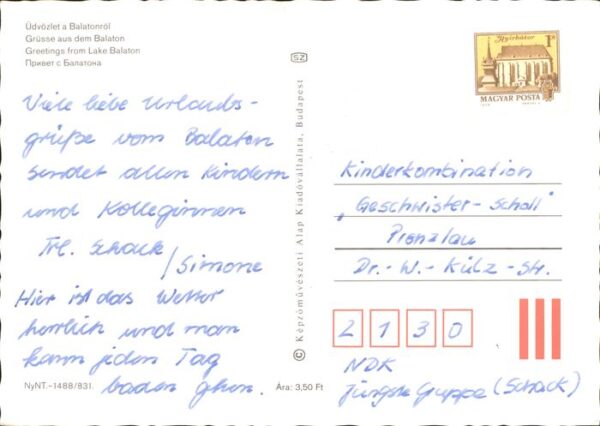 Üdvözlet a Balatonról
Grüsse aus dem Balaton
Greetings from Lake Balaton
Привет с Балатона
Viele liebe Urlaubs-
grüße vom Balaton
sendet allen Kindern
und Kolleginnen
Frl. Schack
/Simone
Hier ist das Wetter
herrlich und man
kann jeden Tag
baden gehen.
NyNT.–1488/831.
Ára: 3,50 Ft
© Képzőművészeti Alap Kiadóvállalata, Budapest
SZ
Nyírbátor
1Ft
MAGYAR POSTA
Kinderkombination
„Geschwister-Scholl"
Prenzlau
Dr.-W.-Külz-Str.
2130
NDK
Jüngste Gruppe (Schack)